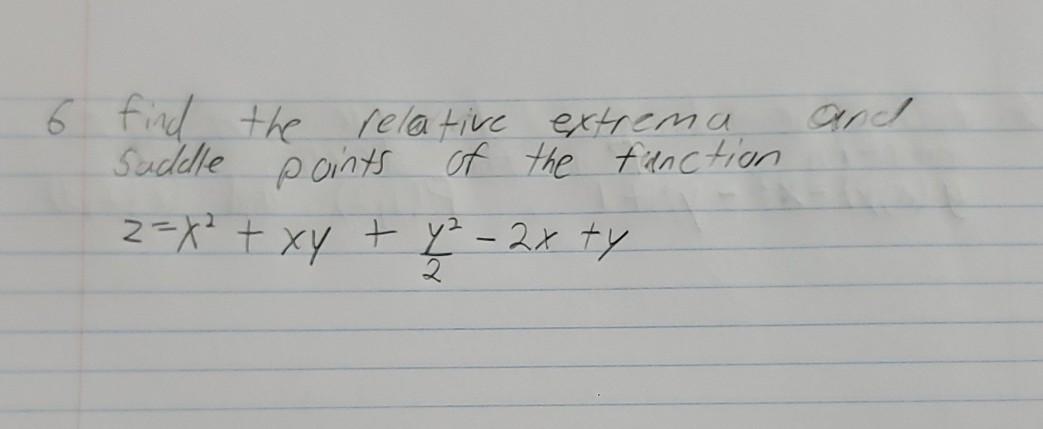 6 find the relative extrema and
Saddle points of the function
z=x² + xy + y²/2 - 2x + y